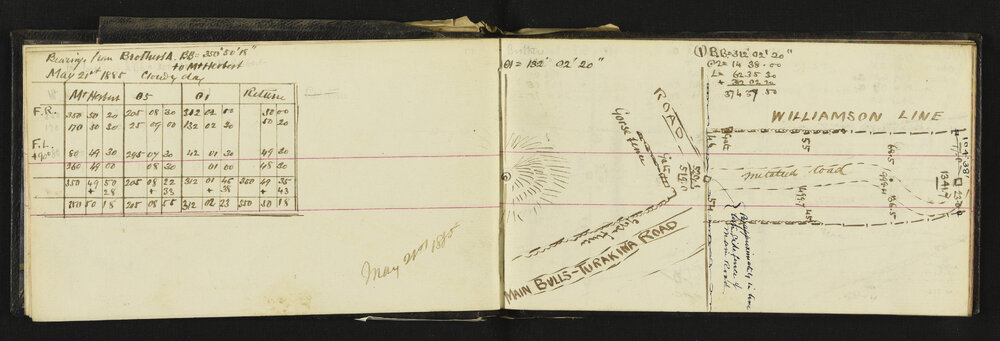 Bearings from Brothers A. BB = 350° 50' 18"
to Mt Herbert
May 21st 1885 Cloudy day
Mt Herbert 05 01 Return
F.R. 350 50 20 205 08 30 312 02 00 50 00
170 50 30 25 09 00 132 02 30 50 20
F.L.
+90° 80 49 30 295 07 30 42 01 30 49 30
260 49 00 08 30 01 00 48 30
350 49 50 205 08 22 312 01 45 350 49 35
+ 28 + 33 + 38 + 43
350 50 18 205 08 55 312 02 23 350 50 18
May 21st 1885
01 = 132° 02' 20"
(1) BB = 312° 02' 20"
@2 = 14 38 00
L = 62 35 30
+ 312 02 20
374 37 50
WILLIAMSON LINE
ROAD
Gorse fence
Gate
519.0
Gate
55
68.5
10° 4' 38"
metalled road
1341.7
Gorse fence
MAIN BULLS-TURAKINA ROAD
54
45
Approximately in line
with
fence of
main Road